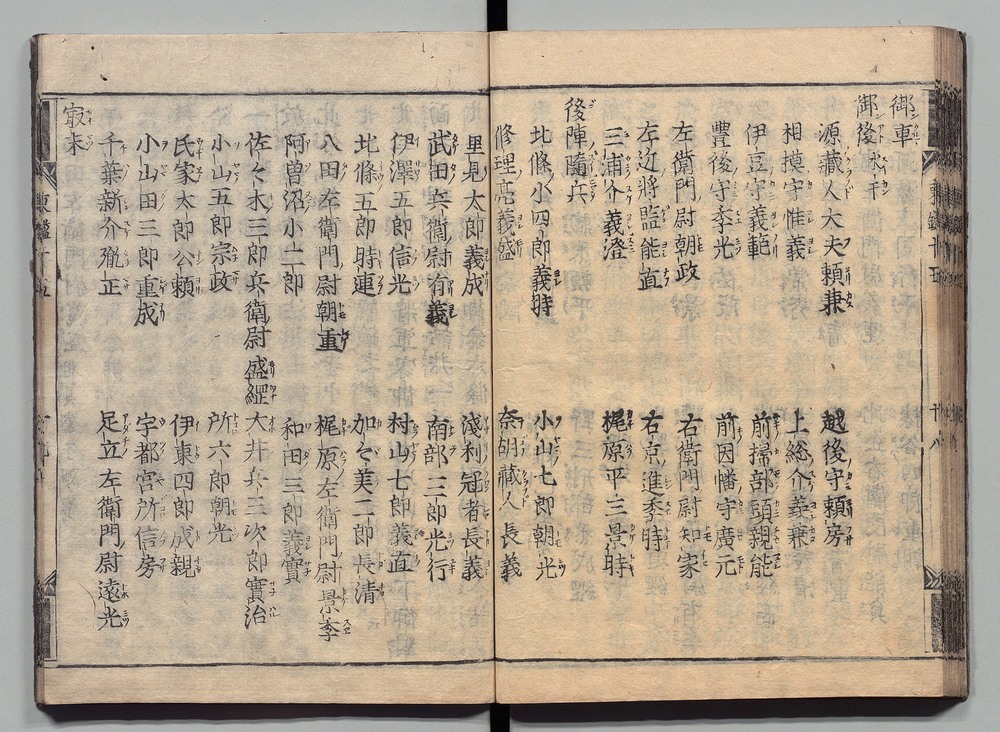 御車
御後 水干
源藏人大夫頼兼 越後守頼房
相摸守惟義 上総介義兼
伊豆守義範 前掃部頭親能
豊後守季光 前因幡守廣元
左衛門尉朝政 右衛門尉知家
左近將監能直 右京進季時
三浦介義澄 梶原平三景時
後陣隨兵
北條小四郎義時 小山七郎朝光
修理亮義盛 奈胡藏人長義
里見太郎義成 淺利冠者長義
武田兵衛尉有義 南部三郎光行
伊澤五郎信光 村山七郎義直
北條五郎時連 加々美二郎長清
八田左衛門尉朝重 梶原左衛門尉景季
阿曽沼小二郎 和田三郎義實
佐々木三郎兵衛尉盛綱 大井兵三次郎實治
小山五郎宗政 所六郎朝光
氏家太郎公頼 伊東四郎成親
小山田三郎重成 宇都宮所信房
千葉新介胤正 足立左衛門尉遠光
最末
東鑑十五